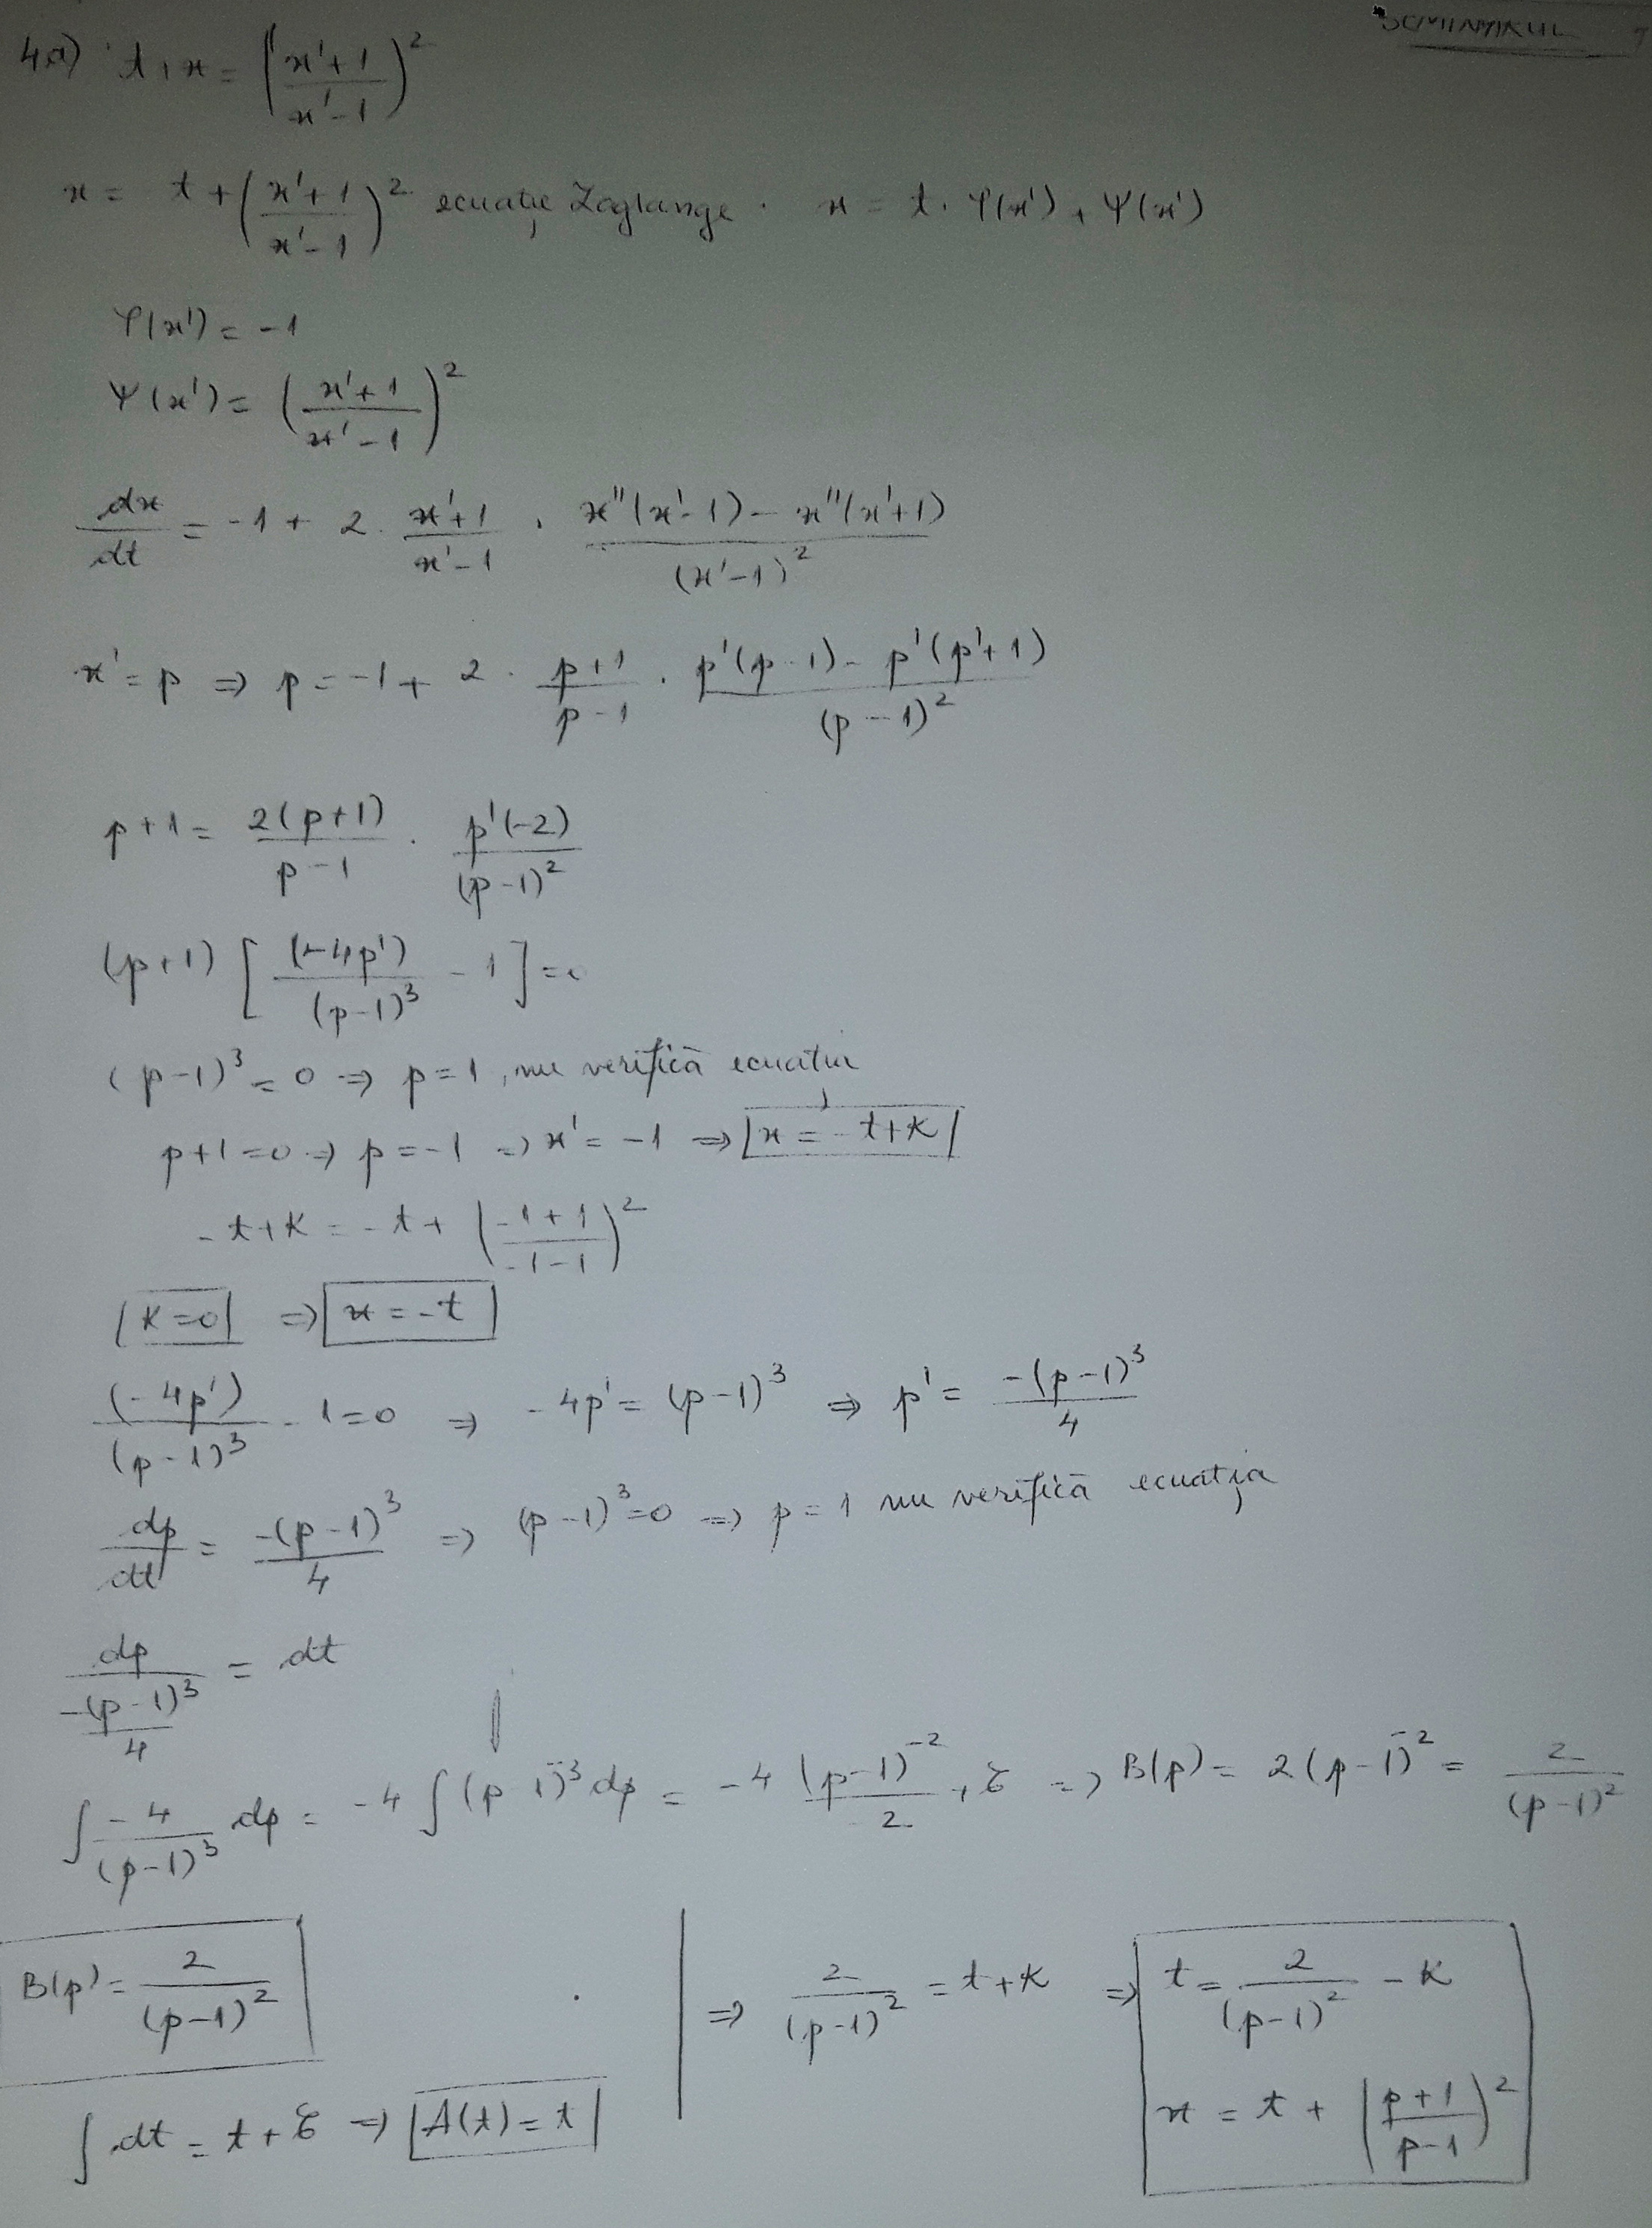 SEMINARUL
4a) t+x = ((x'+1)/(x'-1))^2
x = t + ((x'+1)/(x'-1))^2 ecuație Lagrange. x = t·φ(x') + Ψ(x')
φ(x') = -1
Ψ(x') = ((x'+1)/(x'-1))^2
dx/dt = -1 + 2·(x'+1)/(x'-1) · (x''(x'-1) - x''(x'+1))/(x'-1)^2
x' = p ⇒ p = -1 + 2·(p+1)/(p-1) · (p'(p-1) - p'(p'+1))/(p-1)^2
p+1 = 2(p+1)/(p-1) · p'(-2)/(p-1)^2
(p+1) [(-4p')/(p-1)^3 - 1] = 0
(p-1)^3 = 0 ⇒ p=1, nu verifică ecuația
p+1=0 ⇒ p=-1 ⇒ x'=-1 ⇒ x = -t+K
-t+K = -t + ((-1+1)/(-1-1))^2
K=0 ⇒ x=-t
(-4p')/(p-1)^3 - 1=0 ⇒ -4p' = (p-1)^3 ⇒ p' = -(p-1)^3/4
dp/dt = -(p-1)^3/4 ⇒ (p-1)^3=0 ⇒ p=1 nu verifică ecuația
dp/(-(p-1)^3/4) = dt
∫ -4/(p-1)^3 dp = -4 ∫ (p-1)^-3 dp = -4 (p-1)^-2/2 + C ⇒ B(p) = 2(p-1)^-2 = 2/(p-1)^2
B(p) = 2/(p-1)^2
∫ dt = t + C ⇒ A(t) = t
⇒ 2/(p-1)^2 = t+K ⇒ t = 2/(p-1)^2 - K
x = t + ((p+1)/(p-1))^2